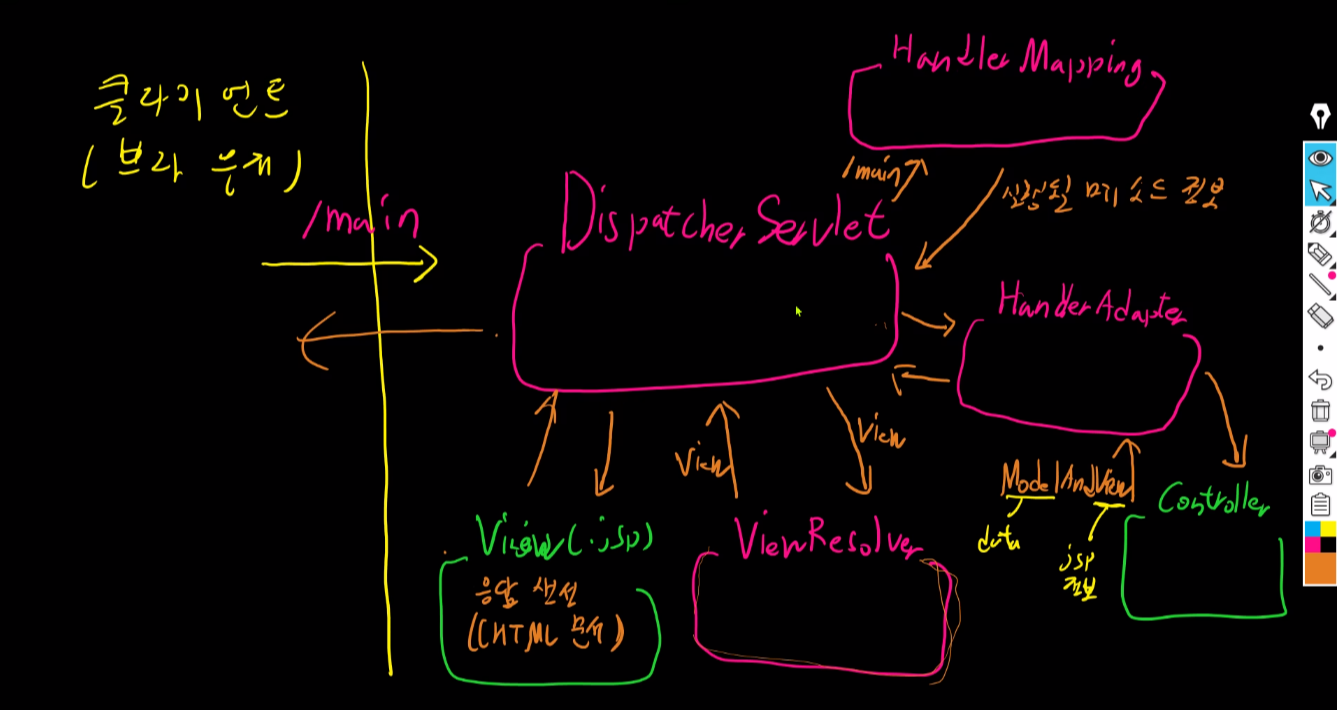 클라이언트
(브라우저)
/main
HandlerMapping
/main
실행될 메소드 정보
DispatcherServlet
HandlerAdapter
View
View
ModelAndView
data
jsp
정보
Controller
View(.jsp)
응답 생성
(HTML 문서)
ViewResolver